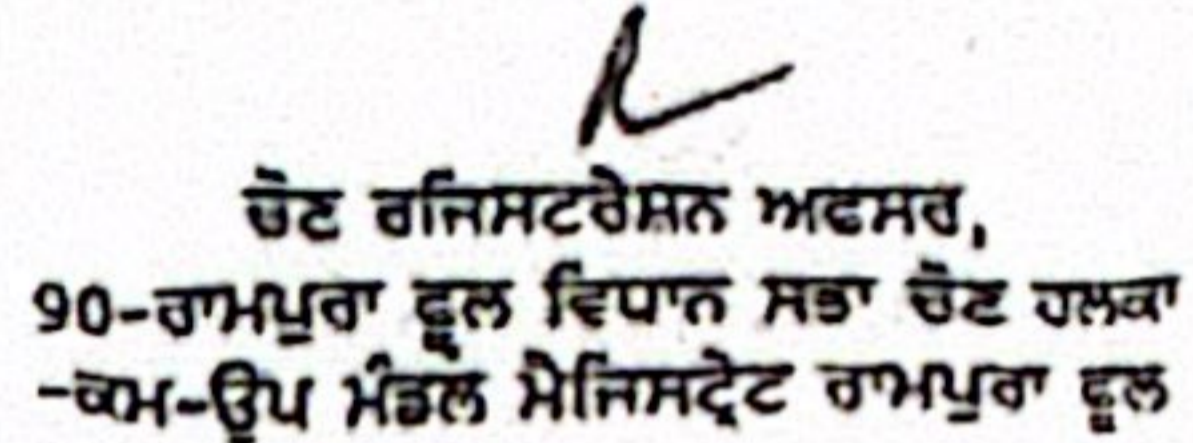 ਚੋਣ ਰਜਿਸਟਰੇਸ਼ਨ ਅਫਸਰ,
90-ਰਾਮਪੁਰਾ ਫੂਲ ਵਿਧਾਨ ਸਭਾ ਚੋਣ ਹਲਕਾ
-ਕਮ-ਉਪ ਮੰਡਲ ਮੈਜਿਸਟ੍ਰੇਟ ਰਾਮਪੁਰਾ ਫੂਲ